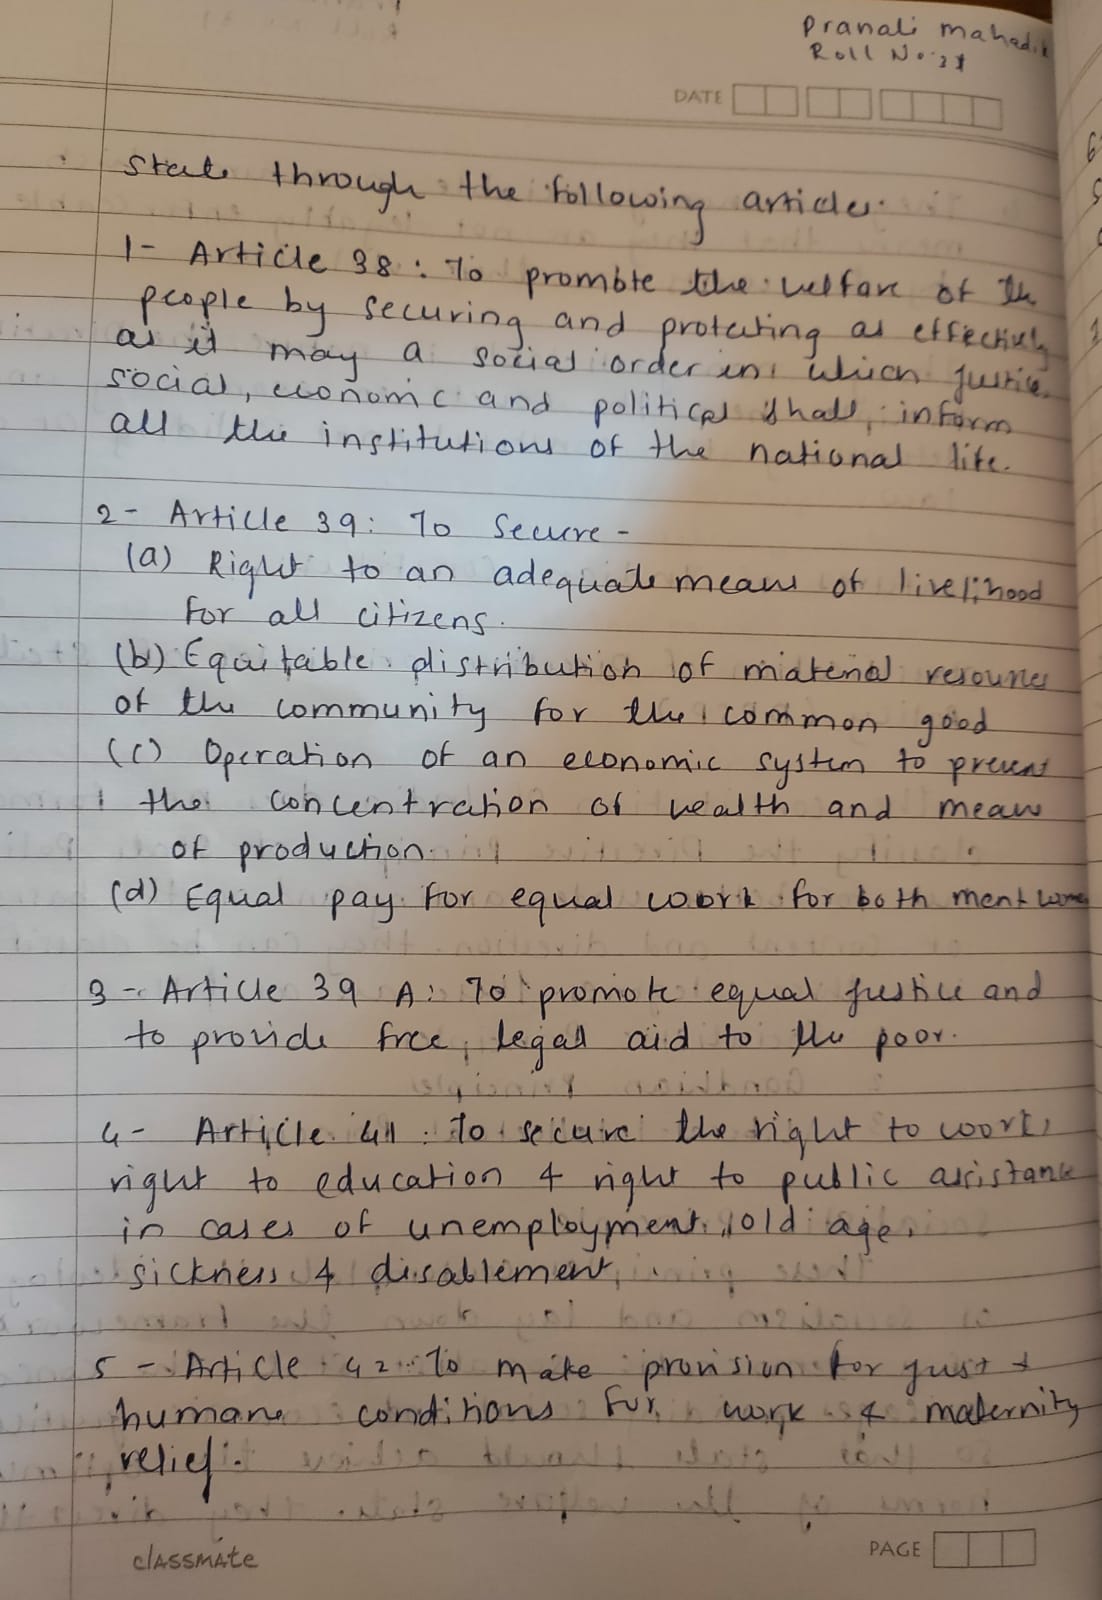 Pranali Mahadik
Roll No: 21
DATE
State through the following articles.
1- Article 38 : To promote the welfare of the
people by securing and protecting as effectively
as it may a social order in which justice,
social, economic and political shall inform
all the institutions of the national life.
2- Article 39: To Secure -
(a) Right to an adequate means of livelihood
for all citizens.
(b) Equitable distribution of material resources
of the community for the common good
(c) Operation of an economic system to prevent
the concentration of wealth and means
of production.
(d) Equal pay for equal work for both men & women
3- Article 39 A: To promote equal justice and
to provide free legal aid to the poor.
4- Article 41 : To secure the right to work,
right to education & right to public assistance
in cases of unemployment, old age,
sickness & disablement,
5 - Article 42: To make provision for just &
humane conditions for work & maternity
relief.
classmate
PAGE